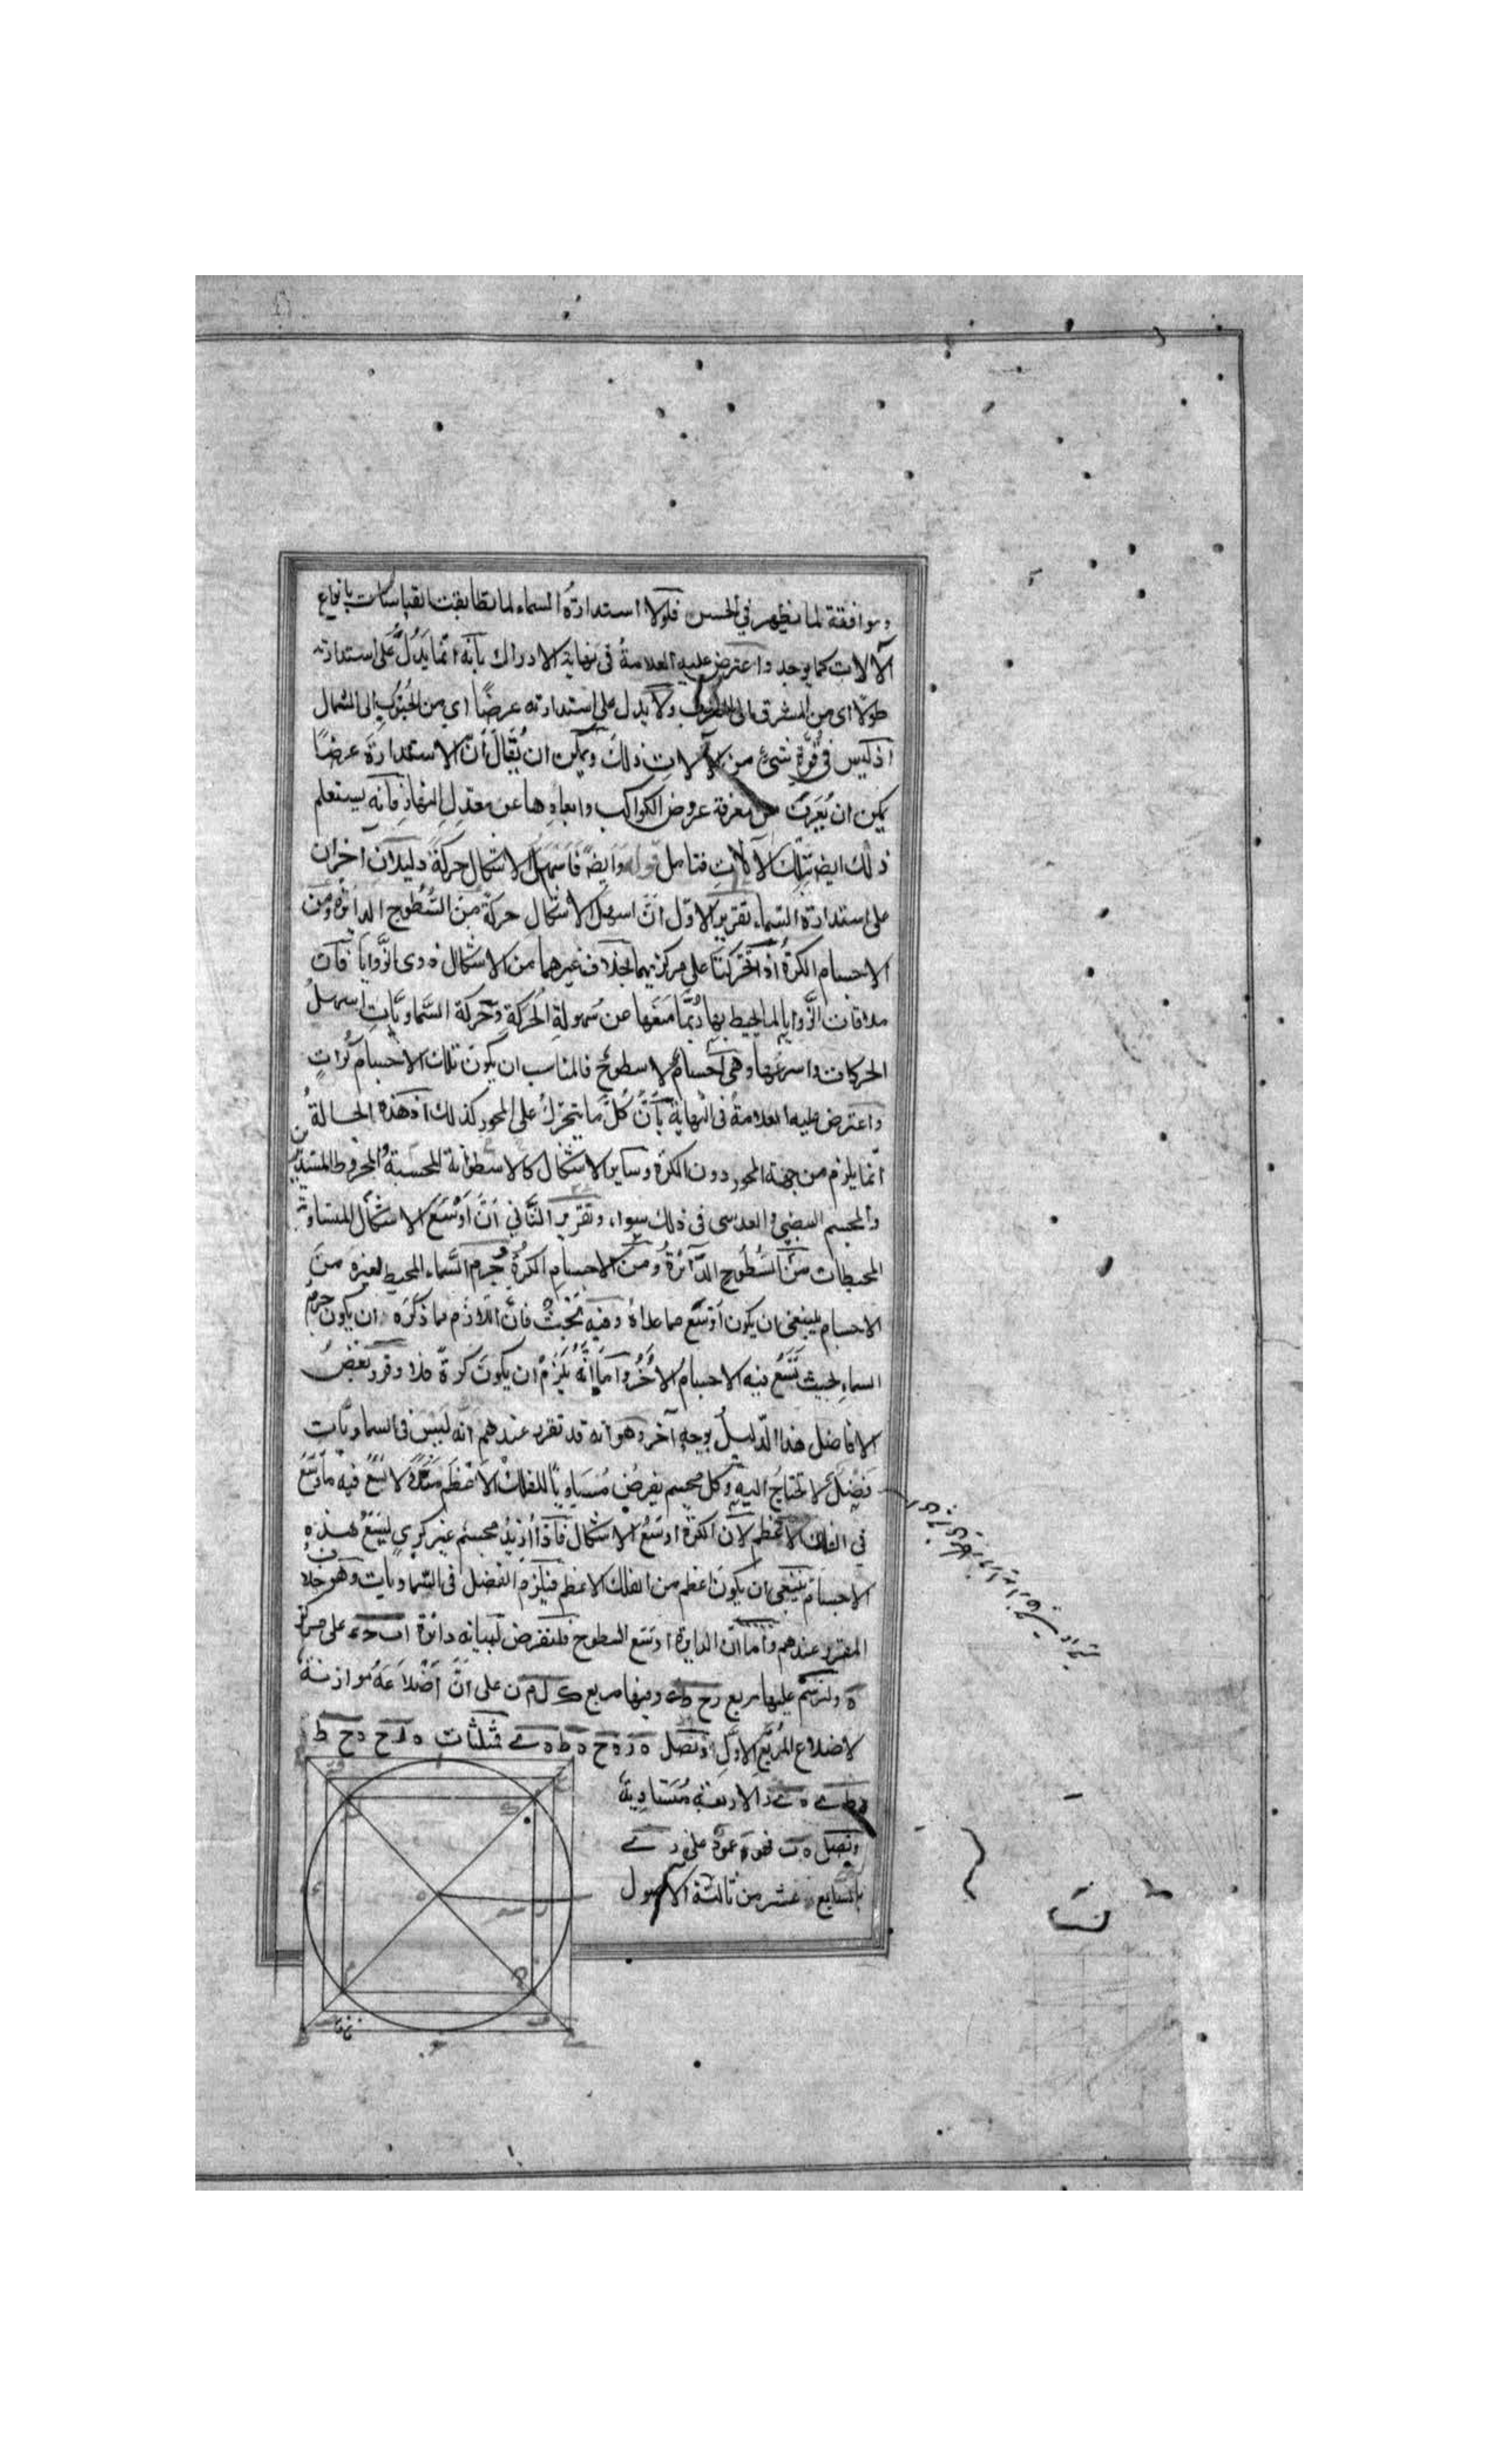 وموافقة لما يظهر في الحس فلولا استدارة السماء لما تطابقت القياسات بانواع
الآلات كما يوجد واعترض عليه العلامة فى نهاية الادراك بانه انما يدل على استدارته
طولا اى من المشرق الى المغرب ولا يدل على استدارته عرضًا اي من الجنوب الى الشمال
اذ ليس فى قوة شئ من الآلات ذلك ويمكن ان يُقال ان الاستدارة عرضًا
يمكن ان يُعرف من معرفة عروض الكواكب وابعادها عن معدل النهار فانه يستعلم
ذلك ايضا بتلك الآلات فتامل قوله وايضًا فاسهل الاشكال حركة دليلان آخران
على استدارة السماء تقرير الاول انّ اسهل الاشكال حركة من السُّطوح الدائرة ومن
الاجسام الكرةُ اذا تحركتا على مركزيهما بخلاف غيرهما من الاشكال ذوى الزَّوايا فانّ
ملاقات الزَّوايا لما يحيط بها ربَّما منعها من سُهولةِ الحركةِ وحركة السَّماويَّاتِ اسهلُ
الحركات واسرعُها وهى اجسامٌ لا سطوحٌ فالمناسب ان يكون تلك الاجسام كُراتٍ
واعترض عليه العلامةُ فى النهاية بأنّ كُلّ ما يتحرّكُ على المحور كذلك اذ هذه الحالةُ
انّما يلزم من جهة المحور دون الكرة وساير الاشكال كالاسطوانة المجسمة والمخروط المستدير
والمجسم البيضى والعدسى فى ذلك سواء وتقرير الثَّاني انّ اَوْسَعَ الاشكال المتساوية
المحيطات من السُّطُوح الدَّائرةُ ومن الاجسام الكرةُ وجرم السَّماء المحيط لغيره من
الاجسام ينبغى ان يكون اَوسَع مما عداهُ وفيه بَحْثٌ فانّ اللازم مما ذكَرَه ان يكون جرم
السماء بحيث يَسَعُ فيه الاجسامُ الأُخَرُ وامّا انّهُ يلزمُ ان يكونَ كُرةً فلا وقرّر بعضُ
الافاضل هذا الدّليلَ بوجهٍ آخر وهو انه قد تقرر عندهم انّه ليس فى السماويّاتِ
فَضْلٌ لا تحتاجُ اليه وكل مجسم يفرضُ مُسَاويًا للفلك الاعظم مثلاً لا يسَعُ فيه ما وَسَعَ
في الفلك الاعظم لانّ الكرة اوسَعُ الاشكال فاذا اُريدُ مجسم غير كريٍ ليسَعُ هذه
الاجسام ينبغى ان يكونَ اعظم من الفلك الاعظم فيلزم الفضل فى السّماويات وهو خلاف
المقرر عندهم وأمّا انّ الدايرة اوسَع السطوح فلنفرض لبيانه دائرة ا ب ح د على مركز
ه ولنرسم عليها مربع ر ح ط ى وفيها مربع ك ل م ن على انّ أضلاعَهُ موازنةٌ
لاضلاع المُربّع الاوّل ونصل ه ر ه ح ه ط ه ى فمثلثات ه ر ح ه ح ط
ه ط ى ه ى ر الاربعة مُتساويةٌ
ونصل ه ب فهو عمودٌ على ر ى
بالسّابع عشر من ثالثة الاصول